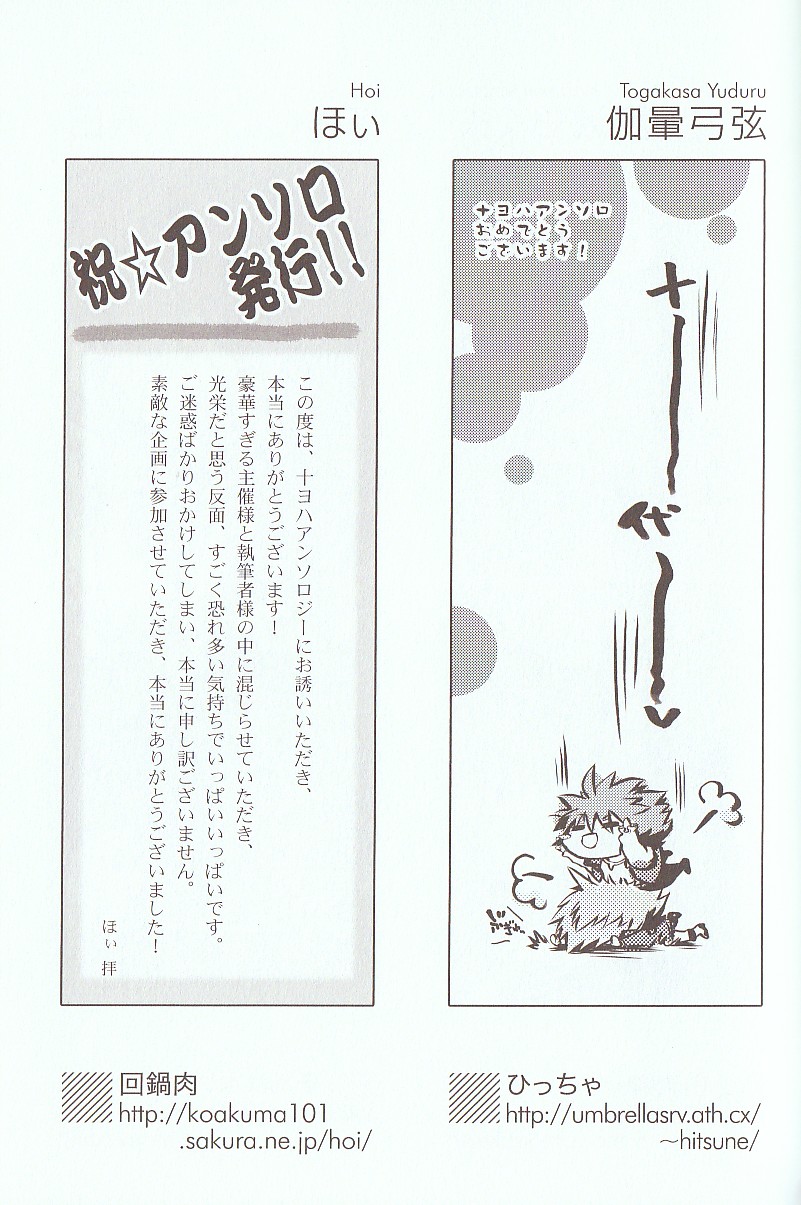 Togakasa Yuduru
伽暈弓弦
十ヨハアンソロ
おめでとう
ございます!
十―代―
ひっちゃ
http://umbrellasrv.ath.cx/
~hitsune/
Hoi
ほぃ
祝☆アンソロ
発行!!
この度は、十ヨハアンソロジーにお誘いいただき、
本当にありがとうございます!
豪華すぎる主催様と執筆者様の中に混じらせていただき、
光栄だと思う反面、すごく恐れ多い気持ちでいっぱいいっぱいです。
ご迷惑ばかりおかけしてしまい、本当に申し訳ございません。
素敵な企画に参加させていただき、本当にありがとうございました!
ほぃ 拝
回鍋肉
http://koakuma101
.sakura.ne.jp/hoi/